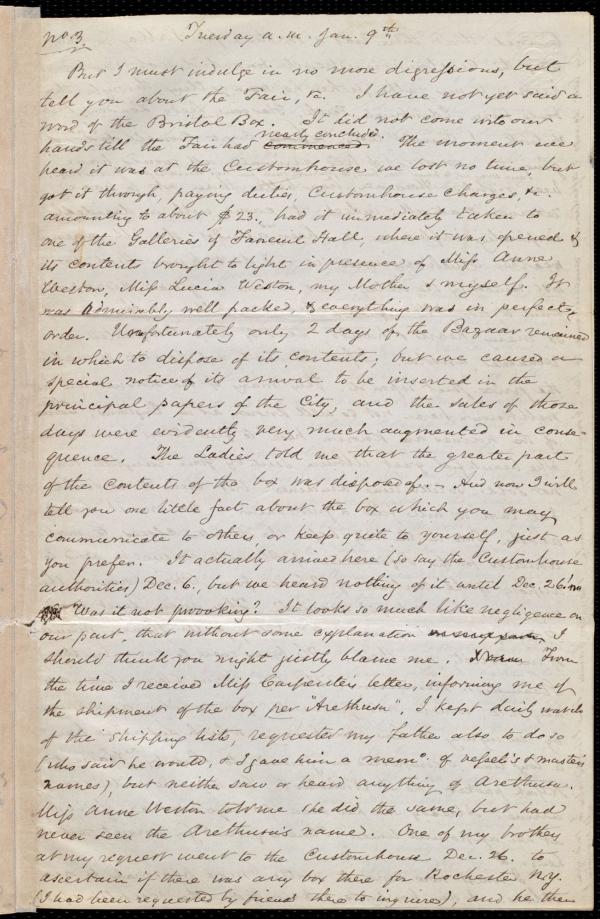 No 3. Tuesday a.m. Jan. 9th
But I must indulge in no more digressions, but
tell you about the Fair, &c. I have not yet said a
word of the Bristol Box. It did not come into our
hands till the Fair had nearly concluded. The moment we
heard it was at the Customhouse we lost no time, but
got it through, paying duties, Customhouse charges, &c.
amounting to about $23., had it immediately taken to
one of the Galleries of Faneuil Hall, where it was opened &
its contents brought to light in presence of Miss Anne
Weston, Miss Lucia Weston, my Mother & myself. It
was admirably well packed, & everything was in perfect
order. Unfortunately only 2 days of the Bazaar remained
in which to dispose of its contents; but we caused a
special notice of its arrival to be inserted in the
principal papers of the City, and the sales of those
days were evidently very much augmented in conse-
quence. The Ladies told me that the greater part
of the contents of the box was disposed of. – And now I will
tell you one little fact about the box which you may
communicate to others, or keep quite to yourself, just as
you prefer. It actually arrived here (so say the Customhouse
authorities) Dec. 6., but we heard nothing of it until Dec. 26th
Was it not provoking? It looks so much like negligence on
our part, that without some explanation I
should think you might justly blame me. From
the time I received Miss Carpenter's letter, informing me of
the shipment of the box per "Arethusa", I kept daily watch
of the shipping lists, requested my father also to do so
(who said he would, & I gave him a memo. of vessel's & master's
names), but neither saw or heard anything of Arethusa.
Miss Anne Weston told me she did the same, but had
never seen the Arethusa's name. One of my brothers
at my request went to the Customhouse Dec. 26. to
ascertain if there was any box there for Rochester N.Y.
(I had been requested by friends there to inquire), and he then